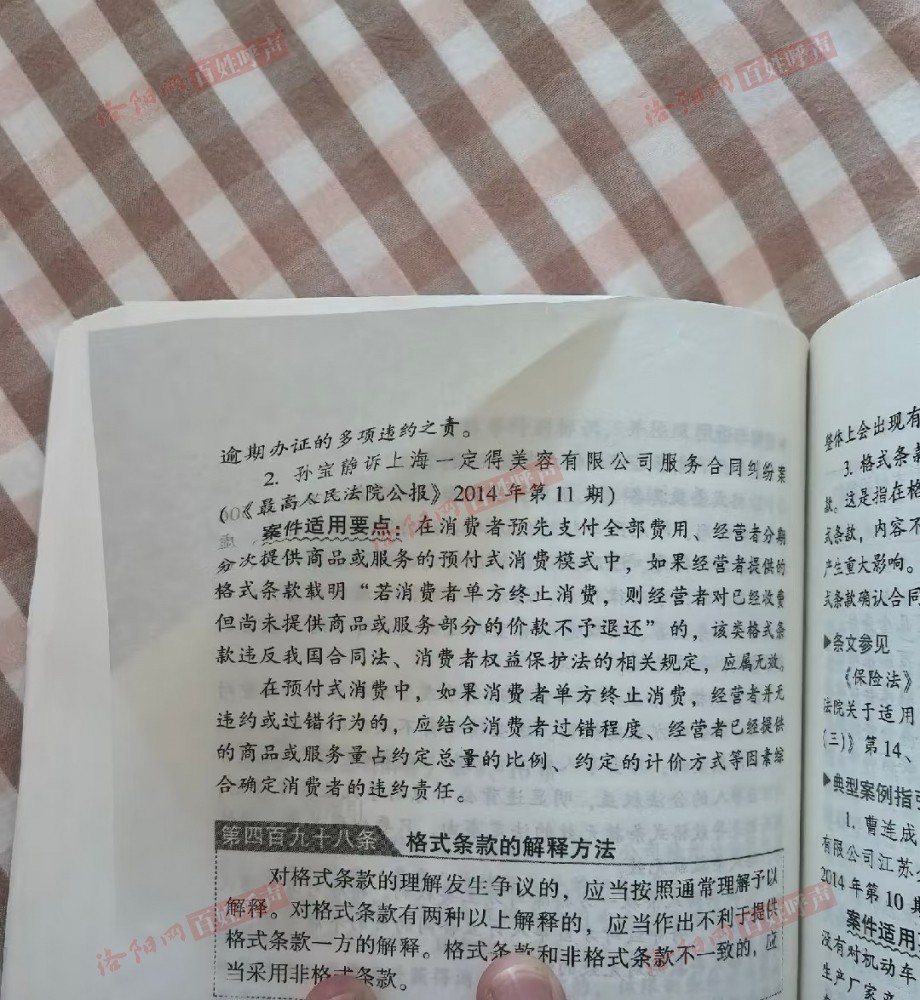 洛阳网 百姓呼声
洛阳网 百姓呼声
逾期办证的多项违约之责。
2. 孙宝静诉上海一定得美容有限公司服务合同纠纷案
(《最高人民法院公报》2014年第11期)
案件适用要点：在消费者预先支付全部费用、经营者分期
分次提供商品或服务的预付式消费模式中，如果经营者提供的
格式条款载明“若消费者单方终止消费，则经营者对已经收费
但尚未提供商品或服务部分的价款不予退还”的，该类格式条
款违反我国合同法、消费者权益保护法的相关规定，应属无效。
在预付式消费中，如果消费者单方终止消费，经营者并无
违约或过错行为的，应结合消费者过错程度、经营者已经提供
的商品或服务量占约定总量的比例、约定的计价方式等因素综
合确定消费者的违约责任。
第四百九十八条 格式条款的解释方法
对格式条款的理解发生争议的，应当按照通常理解予以
解释。对格式条款有两种以上解释的，应当作出不利于提供
格式条款一方的解释。格式条款和非格式条款不一致的，应
当采用非格式条款。
整体上会出现有
3. 格式条款
款。这是指在格
式条款，内容不
产生重大影响。
式条款确认合同
▶条文参见
《保险法》
法院关于适用
(三)》第14、
▶典型案例指引
1. 曹连成
有限公司江苏分
2014年第10期
案件适用
没有对机动车
生产厂家
洛阳网 百姓呼声
洛阳网 百姓呼声
洛阳网 百姓呼声